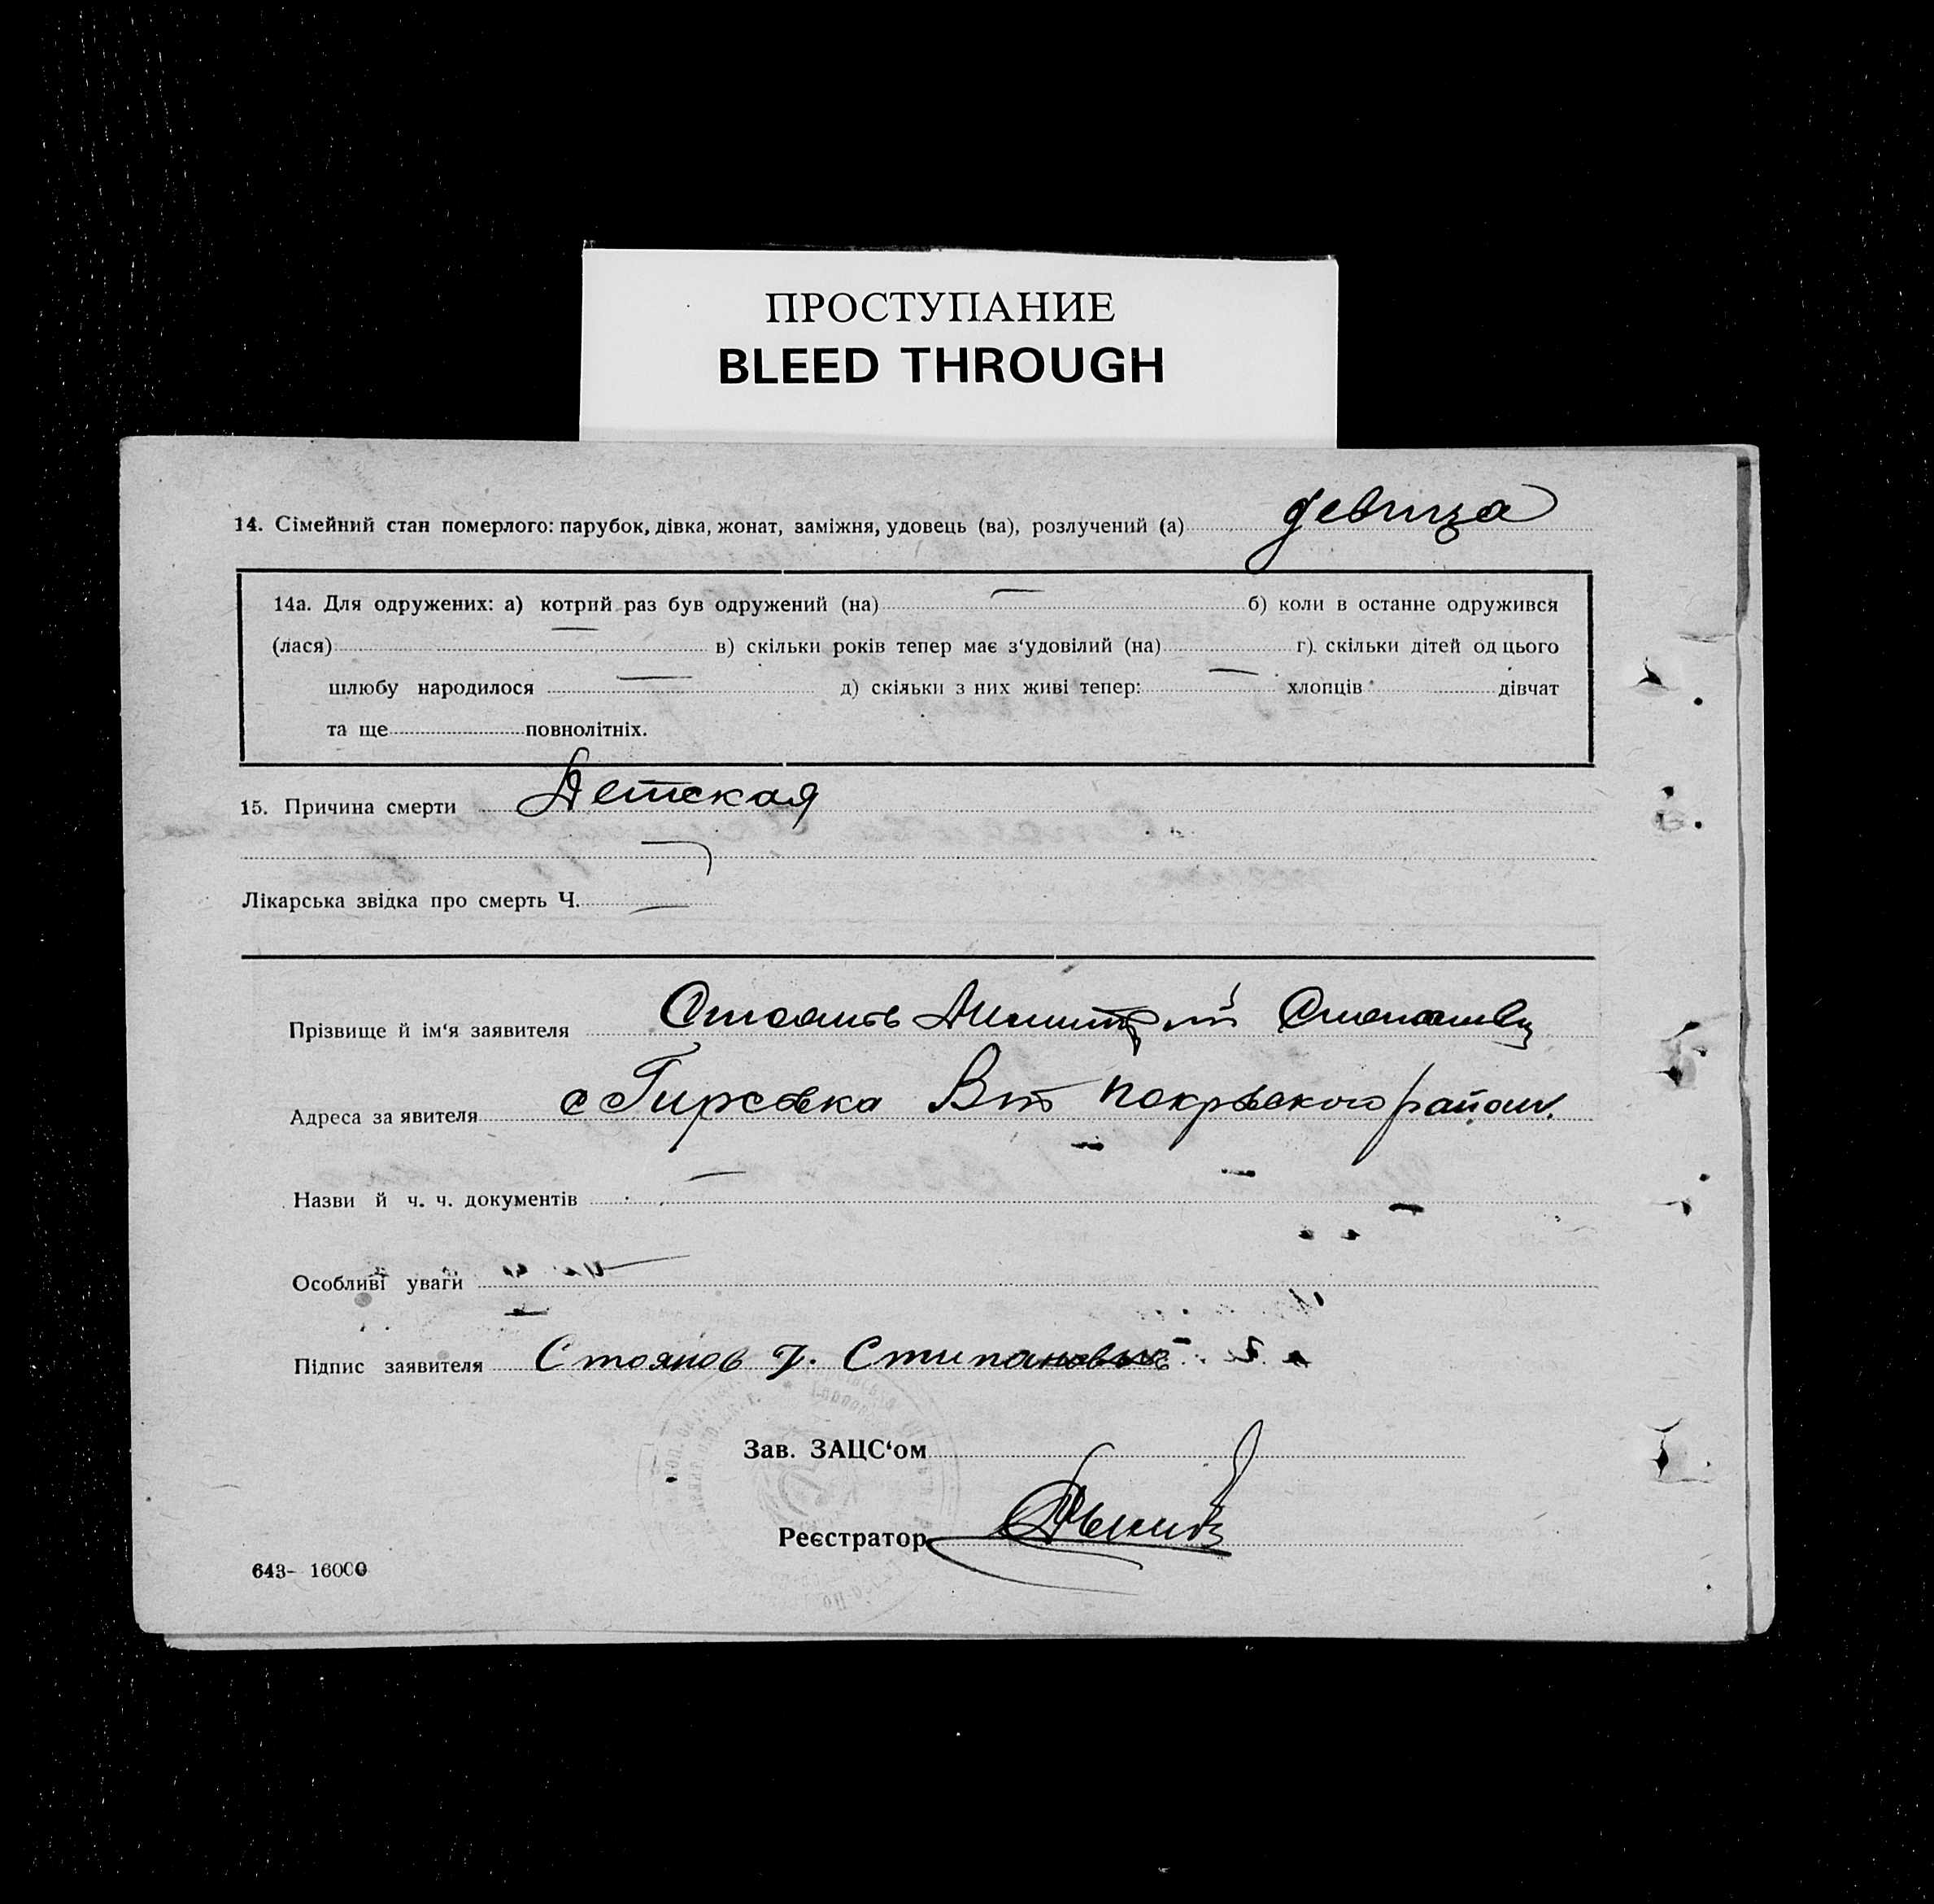 ПРОСТУПАНИЕ
BLEED THROUGH
14. Сімейний стан померлого: парубок, дівка, жонат, заміжня, удовець (ва), розлучений (а) девица
14а. Для одружених: а) котрий раз був одружений (на) б) коли в останнє одружився
(лася) в) скільки років тепер має з‘удовілий (на) г). скільки дітей од цього
шлюбу народилося д) скільки з них живі тепер: хлопців дівчат
та ще повнолітніх.
15. Причина смерти Детская
Лікарська звідка про смерть Ч.
Прізвище й ім‘я заявителя Стоянов Димитрий
Адреса заявителя с Гирсовка покровского района
Назви й ч. ч. документів
Особливі уваги
Підпис заявителя Стоянов Д. Стипанович
Зав. ЗАЦС‘ом
Реєстратор
643- 16000